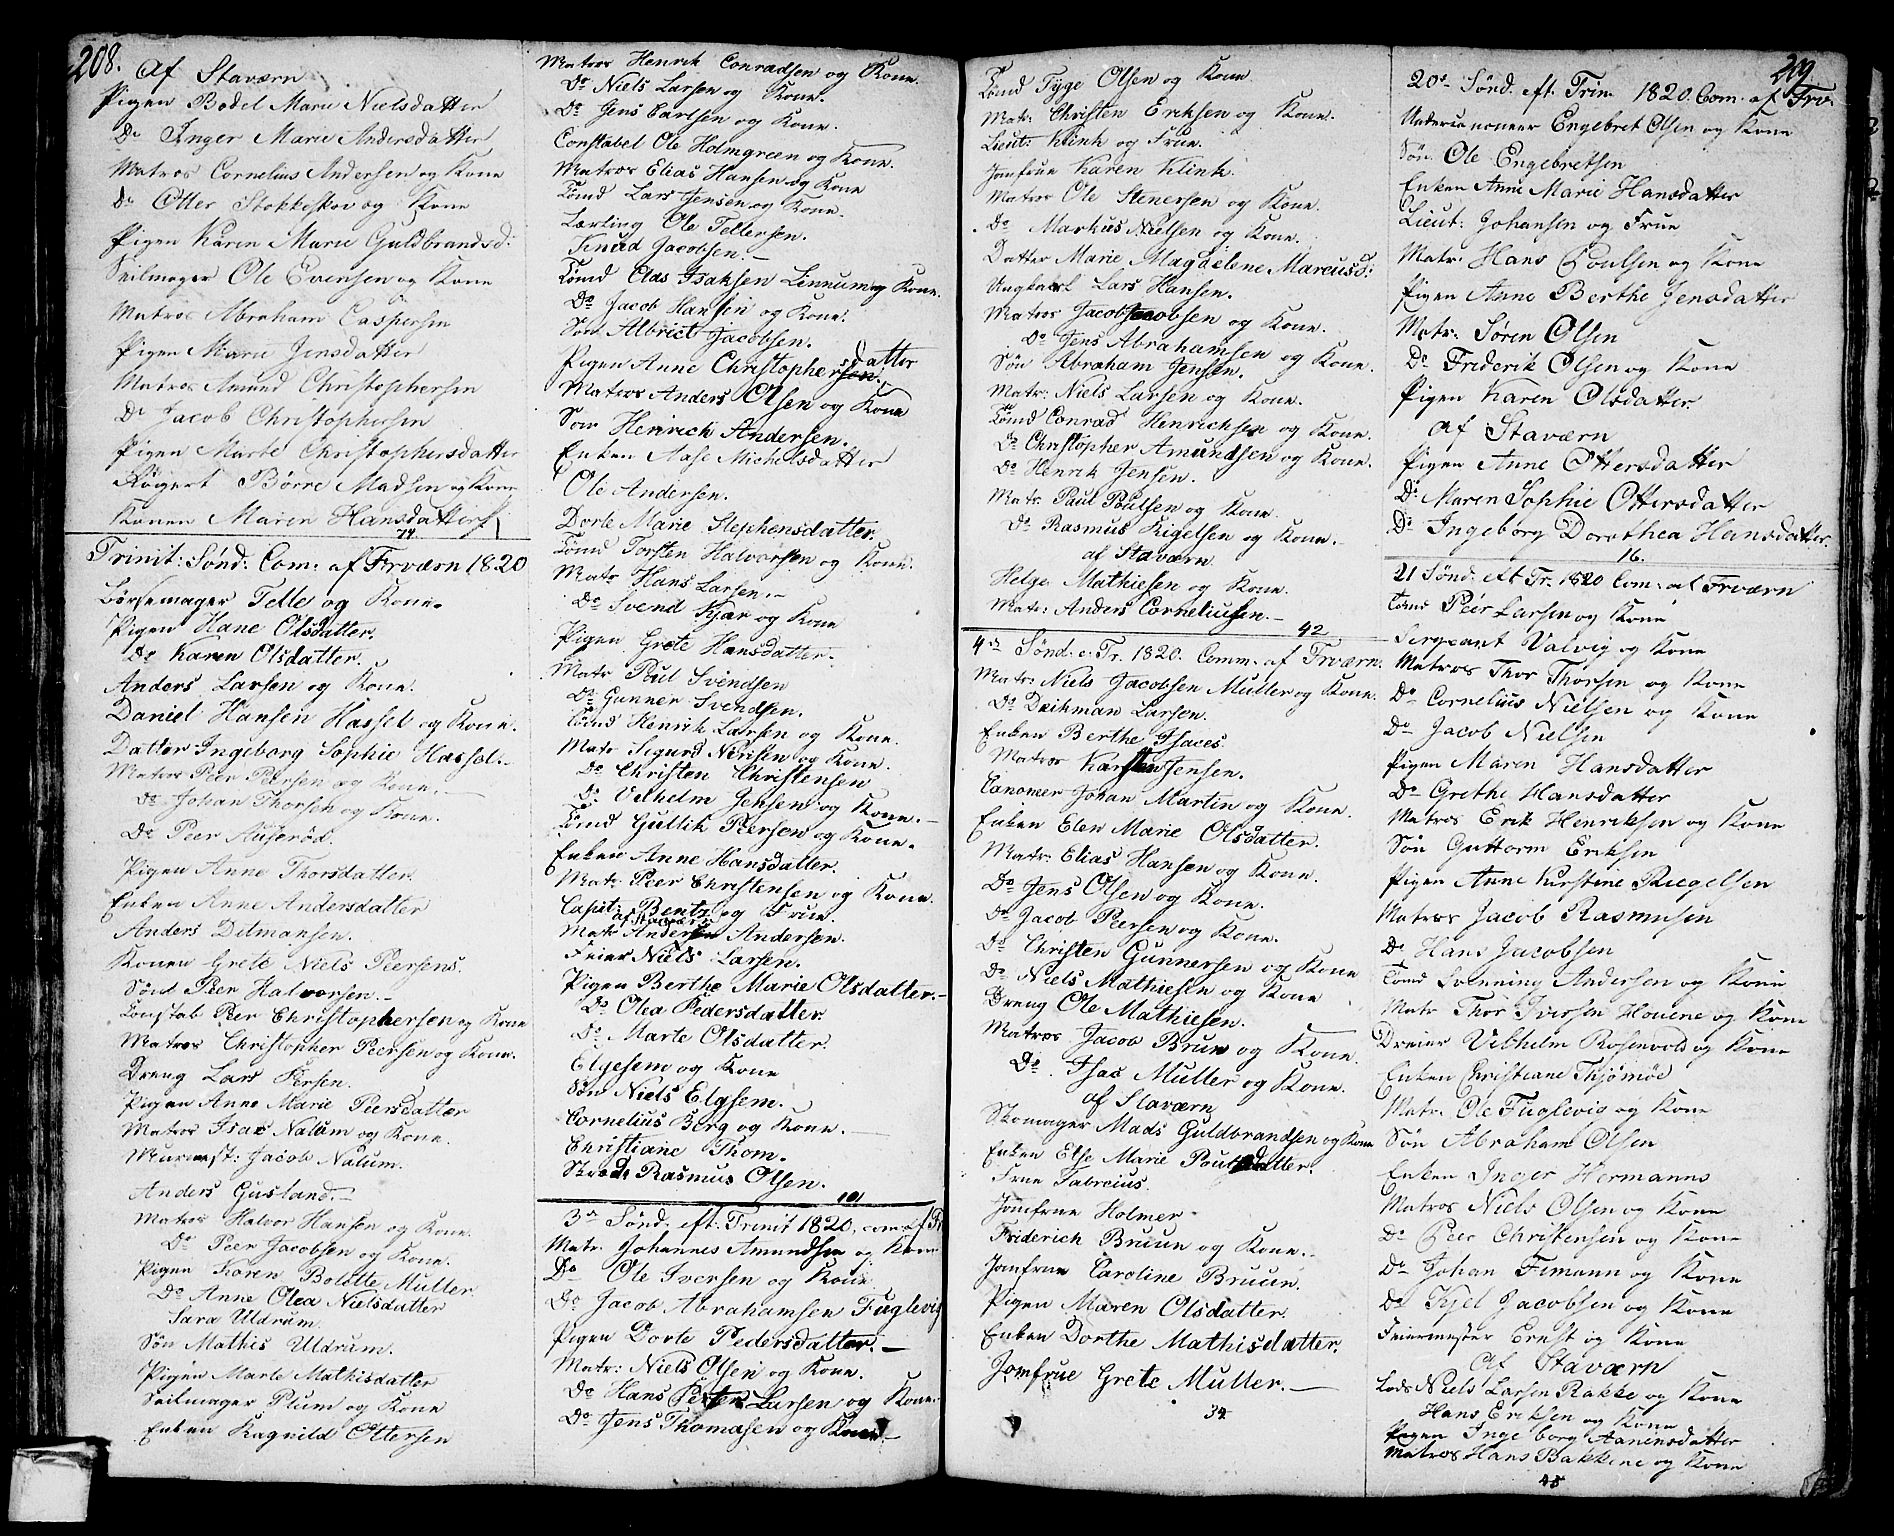 208.
Af Staværn
Pigen Bodel Marie Nielsdatter
Do Inger Marie Andersdatter
Matros Cornelius Andersen og Kone
Do Otter Stokkeskov og Kone
Pigen Karen Marie Guldbrandsd:
Seilmager Ole Evensen og Kone
Matros Abraham Caspersen
Pigen Marie Jensdatter
Matros Amund Christophersen
Do Jacob Christophersen
Pigen Marte Christophersdatter
Børre Madsen og Kone
Konen Maren Hansdatter
74
Trinit: Sønd: Com: af Frværn 1820
Børsemager Telle og Kone.
Pigen Hane Olsdatter.
Do Karen Olsdatter.
Anders Larsen og Kone.
Daniel Hansen Hassel og Kone.
Datter Ingeborg Sophie Hassel.
Matros Peer Peersen og Kone.
Do Johan Thorsen og Kone.
Do Peer Auserød.
Pigen Anne Thorsdatter.
Enken Anne Andersdatter
Anders Ditmansen.
Konen Grete Niels Peersens.
Sønd Peer Halvorsen.
Constab Peer Christophersen og Kone
Matros Christopher Peersen og Kone.
Dreng Lars Persen.
Pigen Anne Marie Peersdatter
Matros Isac Nalum og Kone.
Murmest: Jacob Nalum.
Anders Gusland.
Matros Halvor Hansen og Kone.
Do Peer Jacobsen og Kone.
Pigen Karen Bolette Muller
Do Anne Olea Nielsdatter
Sara Uldrum.
Søn Mathis Uldrum.
Pigen Marte Mathisdatter
Seilmager Plum og Kone
Enken Ragnild Ottersen
Matros Henrik Conradsen og Kone.
Do Niels Larsen og Kone.
Do Jens Carlsen og Kone.
Constabel Ole Holmgreen og Kone.
Matros Elias Hansen og Kone
Tømd Lars Jensen og Kone.
Lærling Ole Tellersen.
Knud Jacobsen.
Tømd Clas Isaksen Linnum og Kone.
Do Jacob Hansen og Kone.
Søn Albrict Jacobsen.
Pigen Anne Christophersdatter
Matros Anders Olsen og Kone
Søn Henrich Andersen.
Enken Aase Michelsdatter
Ole Andersen.
Dorte Marie Stephensdatter
Tømd Torsten Halvorsen og Kone.
Matr Hans Larsen.
Do Svend Kjær og Kone
Pigen Grete Hansdatter.
Matr Poul Svendsen
Do Gunner Svendsen.
Tømd Henrik Larsen og Kone.
Matr Sigurd Nerisen og Kone.
Do Christen Christensen
Do Velhelm Jensen og Kone.
Tømd Gullik Peersen og Kone.
Enken Anne Hansdatter.
Matr Peer Christensen og Kone.
Capit: Bentz og Frue.
af Staværn
Matr Andersen Andersen.
Feier Niels Larsen.
Pigen Berthe Marie Olsdatter.
Do Olea Pedersdatter
Do Marte Olsdatter.
Elgesem og Kone
Søn Niels Elgsem.
Cornelius Berg og Kone.
Christiane Thom.
Rasmus Olsen.
101
3die Sønd. eft. Trinit 1820, com af Fr
Matr. Johannes Amundsen og Kone
Do Ole Iversen og Kone
Do Jacob Abrahamsen Fuglevig
Pigen Dorte Pedersdatter.
Matr: Niels Olsen og Kone.
Do Hans Peter Larsen og Kone.
Do Jens Thomasen og Kone
209.
Tømd Tyge Olsen og Kone
Matr: Christen Eriksen og Kone.
Lieut: Klink og Frue.
Jomfrue Karen Klink.
Matros Ole Stenersen og Kone.
Do Markus Nielsen og Kone.
Datter Marie Magdelene Marcusd:
Ungkarl Lars Hansen.
Matros Jacob Jacobsen og Kone.
Do Jens Abrahamsen og Kone.
Søn Abraham Jensen.
Matr: Niels Larsen og Kone.
Tømd Conrad Henrichsen og Kone.
Do Christopher Amundsen og Kone.
Do Henrik Jensen.
Matr: Paul Poulsen og Kone.
Do Rasmus Rigelsen og Kone.
af Staværn
Helge Mathiesen og Kone.
Matr: Anders Corneliusen.
42
4de Sønd. e. Tr. 1820. Comm. af Frværn.
Matr: Niels Jacobsen Muller og Kone.
Do Deikman Larsen.
Enken Berthe Isaces.
Matros Karsten Jensen.
Canoneer Johan Martin og Kone.
Enken Elen Marie Olsdatter.
Matr: Elias Hansen og Kone.
Do Jens Olsen og Kone.
Do Jacob Peersen og Kone.
Do Christen Gunnersen og Kone
Do Niels Mathiesen og Kone
Dreng Ole Mathiesen.
Matros Jacob Brun og Kone.
Do Isac Muller og Kone.
af Staværn
Skomager Mads Guldbrandsen og Kone
Enken Else Marie Poulsdatter.
Frue Fabreius.
Jomfrue Holmer.
Friderich Bruun og Kone.
Jomfrue Caroline Bruun.
Pigen Maren Olsdatter.
Enken Dorthe Mathisdatter.
Jomfrue Grete Muller.
34
20de Sønd. eft. Trin. 1820. Com. af Frv.
Undercanoneer Engebret Olsen og Kone
Søn Ole Engebretsen
Enken Anne Marie Hansdatter
Lieut: Johansen og Frue
Matr: Hans Poulsen og Kone
Pigen Anne Berthe Jensdatter
Matr: Søren Olsen
Do Friderik Olsen og Kone
Pigen Karen Olsdatter.
af Staværn
Pigen Anne Ottersdatter
Do Maren Sophie Ottersdatter
Do Ingeborg Dorothea Hansdatter.
16.
21 Sønd: eft Tr. 1820 Com: af Frværn
Tømd Peer Larsen og Kone
Sergeant Valvig og Kone
Matros Thor Thorsen og Kone
Do Cornelius Nielsen og Kone
Do Jacob Nielsen
Pigen Maren Hansdatter
Do Grethe Hansdatter
Matros Erik Henriksen og Kone
Søn Guttorm Eriksen
Pigen Anne Kirstine Riegelsen
Matros Jacob Rasmusen
Do Hans Jacobsen
Tømd Svenning Andersen og Kone
Matr Thor Iversen Hovene og Kone
Dreier Vilhelm Rosenvold og Kone
Enken Christiane Thjømøe
Matr. Ole Fuglevig og Kone
Søn Abraham Olsen
Enken Inger Hermanns
Matros Niels Olsen og Kone
Do Peer Christensen og Kone
Do Johan Timann og Kone
Do Kjel Jacobsen og Kone
Feiermester Ernst og Kone
Af Staværn
Lods Niels Larsen Rakke og Kone
Hans Eriksen og Kone
Pigen Ingeborg Aanensdatter
Matros Hans Bakkene og Kone
45